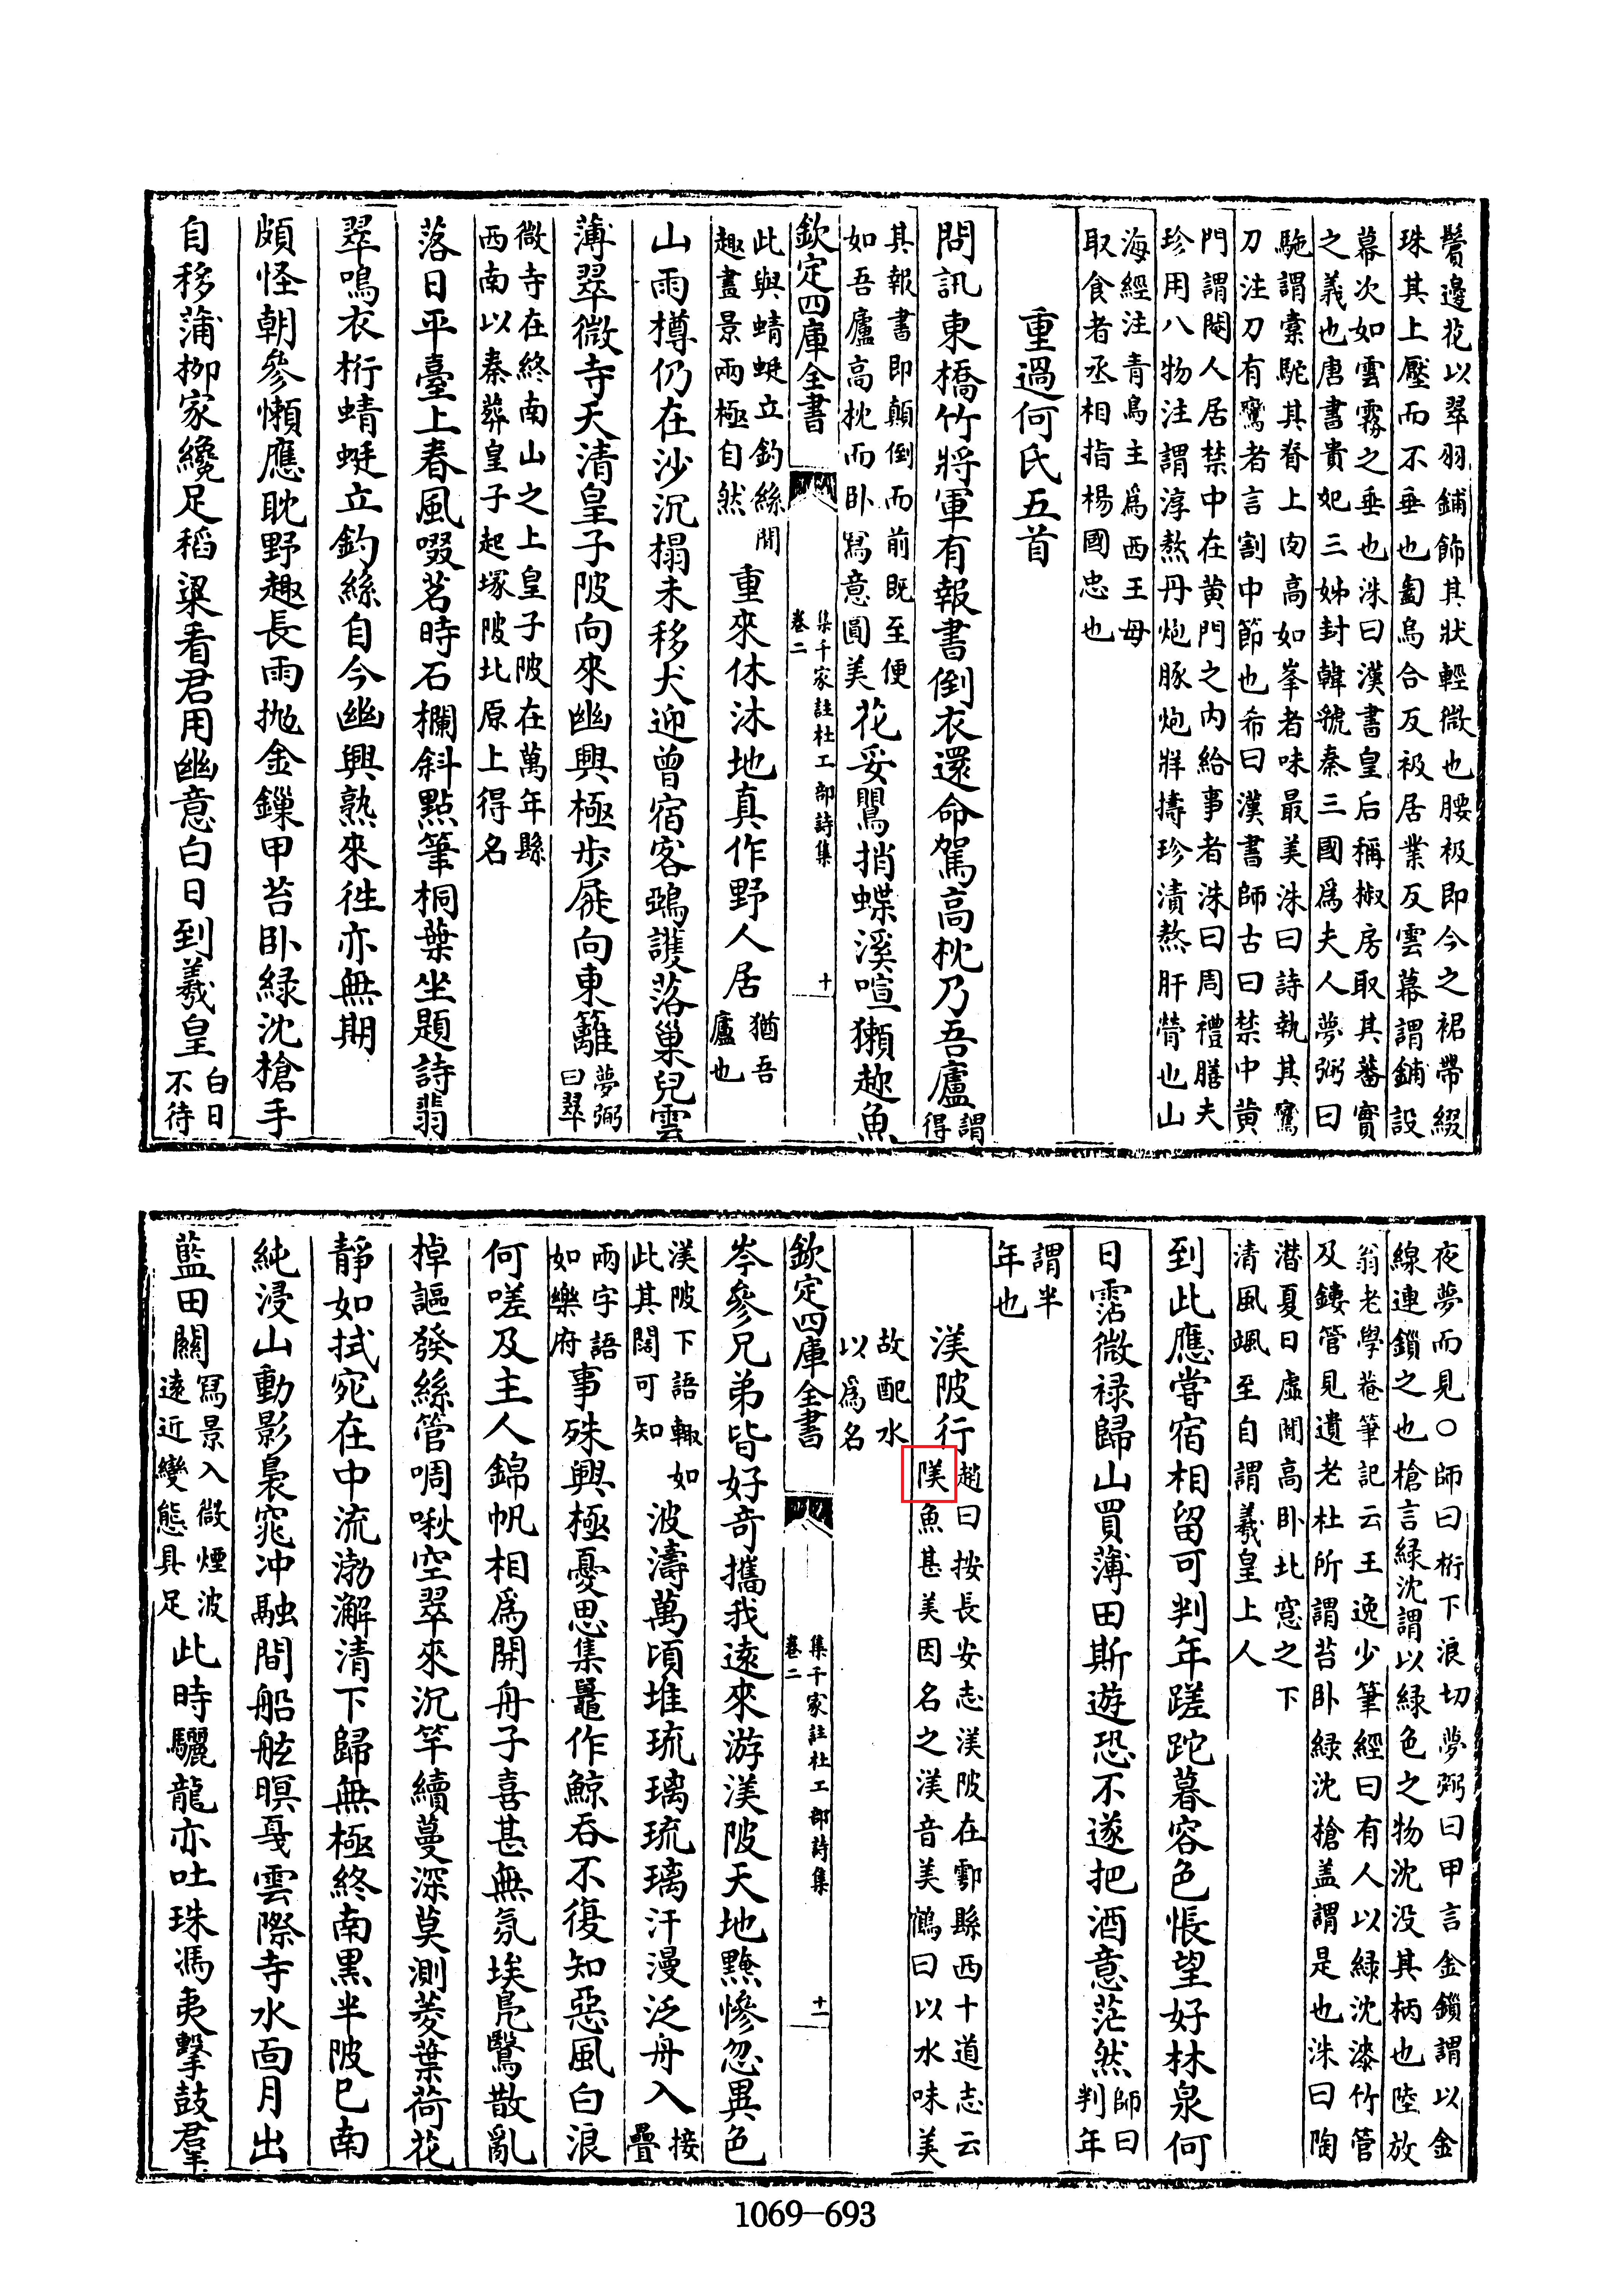 鬢邊花以翠羽鋪飾其狀輕微也腰衱即今之裙帶綴
珠其上壓而不垂也匎烏合反衱居業反雲幕謂鋪設
幕次如雲霧之垂也洙曰漢書皇后稱椒房取其蕃實
之義也唐書貴妃三姊封韓虢秦三國為夫人夢弼曰
駞謂橐駝其脊上肉高如峯者味最美洙曰詩執其鸞
刀注刀有鸞者言割中節也希曰漢書師古曰禁中黄
門謂閹人居禁中在黄門之内給事者洙曰周禮膳夫
珍用八物注謂淳熬丹炮豚炮牂擣珍漬熬肝膋也山
海經注青鳥主為西王母
取食者丞相指楊國忠也
重過何氏五首
問訊東橋竹將軍有報書倒衣還命駕高枕乃吾廬謂得
其報書即顛倒而前既至便如吾廬高枕而卧寫意圓美花妥鸎捎蝶溪喧獺趂魚
欽定四庫全書 集千家註杜工部詩集 卷二 十
此與蜻蜓立釣絲閒趣盡景兩極自然重來休沐地真作野人居猶吾廬也
山雨樽仍在沙沉榻未移犬迎曾宿客鵶護落巢兒雲
薄翠微寺天清皇子陂向來幽興極步屣向東籬夢弼曰翠
微寺在終南山之上皇子陂在萬年縣
西南以秦葬皇子起塚陂北原上得名
落日平臺上春風啜茗時石欄斜㸃筆桐葉坐題詩翡
翠鳴衣桁蜻蜓立釣絲自今幽興熟來徃亦無期
頗怪朝參懶應耽野趣長雨抛金鏁甲苔卧緑沈槍手
自移蒲栁家纔足稻粱看君用幽意白日到羲皇白日不待
夜夢而見○師曰桁下浪切夢弼曰甲言金鎖謂以金
線連鎖之也槍言緑沈謂以緑色之物沈没其柄也陸放
翁老學菴筆記云王逸少筆經曰有人以緑沈漆竹管
及鏤管見遺老杜所謂苔卧緑沈槍盖謂是也洙曰陶
潛夏日虛閒高卧北窓之下
清風颯至自謂羲皇上人
到此應嘗宿相留可判年蹉跎暮容色悵望好林泉何
日霑微禄歸山買薄田斯遊恐不遂把酒意茫然師曰判年
謂半年也
渼陂行趙曰按長安志渼陂在鄠縣西十道志云魚甚美因名之渼音美鶴曰以水味美
故配水以為名
欽定四庫全書 集千家註杜工部詩集 卷二 十一
岑參兄弟皆好竒攜我逺來游渼陂天地黤慘忽異色
渼陂下語輙如此其闊可知波濤萬頃堆琉璃琉璃汗漫泛舟入接疊
兩字語如樂府事殊興極憂思集鼉作鯨吞不復知惡風白浪
何嗟及主人錦帆相為開舟子喜甚無氛埃鳧鷖散亂
棹謳發絲管啁啾空翠來沉竿續蔓深莫測菱葉荷花
靜如拭宛在中流渤澥清下歸無極終南黒半陂已南
純浸山動影裊窕冲融間船舷暝戞雲際寺水靣月出
藍田關寫景入微煙波逺近變態具足此時驪龍亦吐珠馮夷擊鼓羣
1069-693